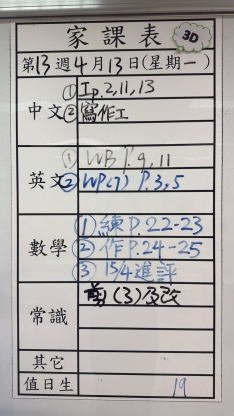 家課表 3D
第13週4月13日(星期一)
中文 ① 工p.2,11,13
② 寫作工
英文 ① WB P.9,11
② WP(7) P.3,5
數學 ① 練P.22-23
② 作P.24-25
③ 15/4進評
常識 (3)及改
其它
值日生 19